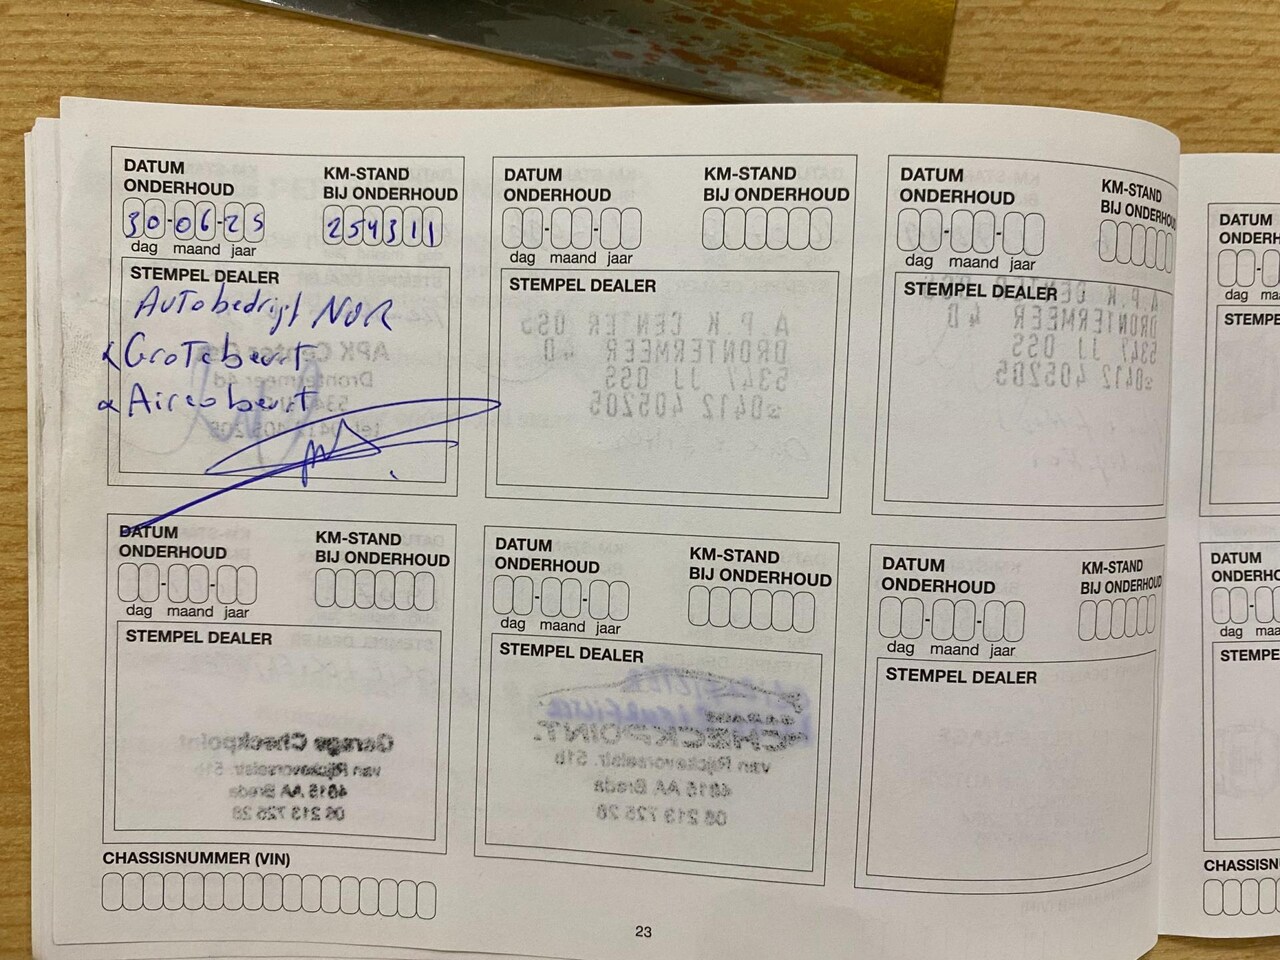 DATUM ONDERHOUD
KM-STAND BIJ ONDERHOUD
30-06-25
254311
dag maand jaar
STEMPEL DEALER
Autobedrijf NOR
Grotebeurt
Aircobeurt
DATUM ONDERHOUD
KM-STAND BIJ ONDERHOUD
dag maand jaar
STEMPEL DEALER
A.P.K CENTER OSS
DRONTERMEER 4D
5347 JJ OSS
☎0412 405205
DATUM ONDERHOUD
KM-STAND BIJ ONDERHOUD
dag maand jaar
STEMPEL DEALER
A.P.K CENTER OSS
DRONTERMEER 4D
5347 JJ OSS
☎0412 405205
DATUM
dag ma
STEMPE
DATUM ONDERHOUD
KM-STAND BIJ ONDERHOUD
dag maand jaar
STEMPEL DEALER
Garage Checkpoint
van Rijckevorselstr. 51b
4815 AA Breda
06 213 725 28
DATUM ONDERHOUD
KM-STAND BIJ ONDERHOUD
dag maand jaar
STEMPEL DEALER
GARAGE
CHECKPOINT.
van Rijckevorselstr. 51b
4815 AA Breda
06 213 725 28
DATUM ONDERHOUD
KM-STAND BIJ ONDERHOUD
dag maand jaar
STEMPEL DEALER
DATUM
dag maa
STEMPE
CHASSISNUMMER (VIN)
CHASSISN
23